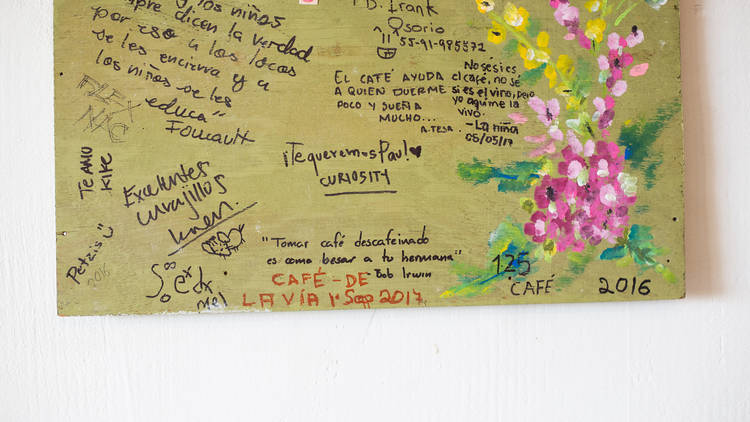 y los niños
siempre dicen la verdad
por eso a los locos
se les encierra y a
los niños se les
educa"
Foucault
D. Frank
Osorio
55-91-985572
EL CAFÉ AYUDA
A QUIEN DUERME
POCO Y SUEÑA
MUCHO...
A. TESA.
No sé si es
el café, no sé
si es el vino, pero
yo aquí me la
vivo.
-La niña
05/05/17
ALEX
TE AMO
KIKE
¡Te queremos Pau!♥
CURIOSITY
Excelentes
carajillos
Petzis
2016
∫₀^∞ eˣdx
mel
"Tomar café descafeinado
es como besar a tu hermana"
Bob Irwin
CAFÉ-DE
LA VÍA 1° Sep 2017
125
CAFÉ
2016